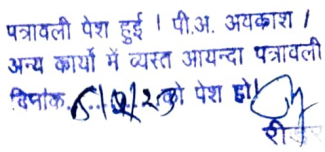 पत्रावली पेश हुई । पी.अ. अवकाश ।
अन्य कार्यो में व्यस्त आयन्दा पत्रावली
दिनांक को पेश हो।
रीडर